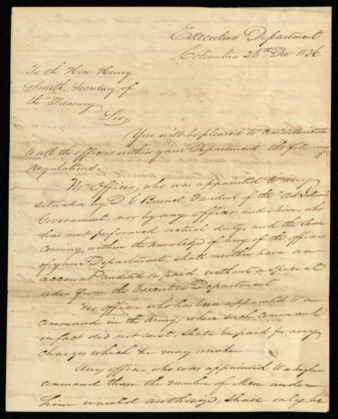 Executive Department
Columbia 26th Dec 1836
To the Hon Henry
Smith, Secretary of
the Treasury
Sir,
You will be pleased to communicate
to all the officers within your Department the following
regulations.
No Officer, who was appointed to any
situation by D G Burnet, President of the "Ad Interim"
Government, nor by any officer under him, who
has not performed actual duty, and the same
coming within the knowledge of any of the officers
of your Department, shall neither have an
account audited or paid, without a special
order from the Executive Department
No officer who has been appointed to a
command in the Army, when such command
in fact did not exist, shall be paid for any
charges which he may make
Any officer, who was appointed to a higher
command than the number of Men under
him would authorize, shall only be